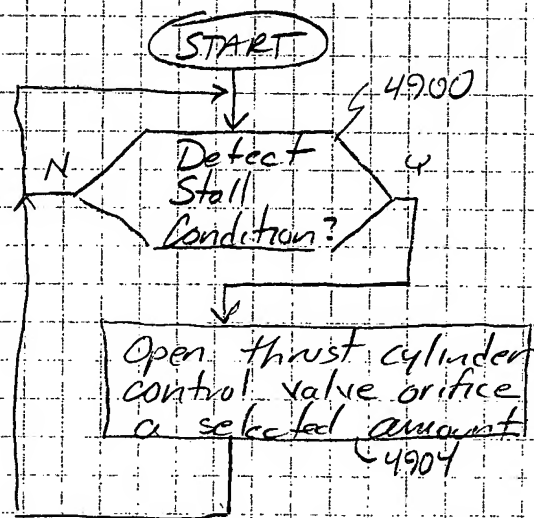 START
4900
N
Detect
Y
Stall
Condition?
Open thrust cylinder
control valve orifice
a selected amount
4904